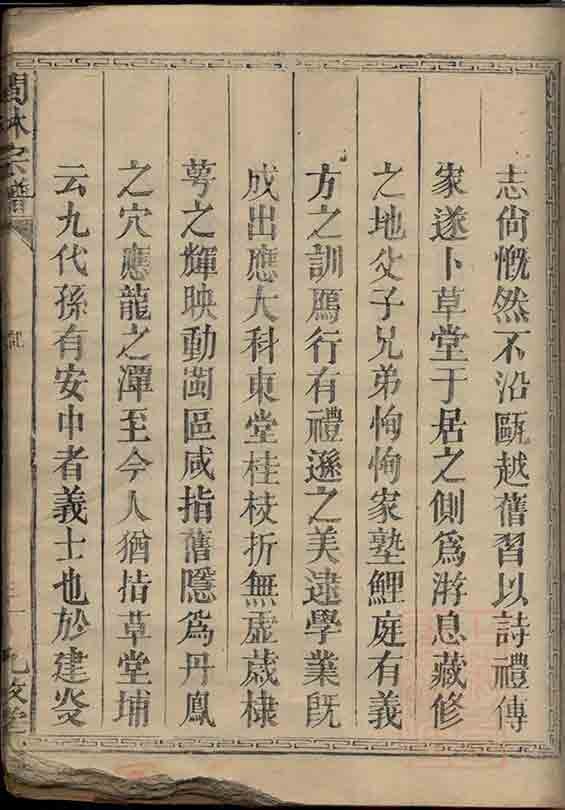 志尙慨然不沿甌越舊習以詩禮傳
家遂卜草堂于居之側爲游息藏修
之地父子兄弟恂恂家塾鯉庭有義
方之訓鴈行有禮遜之美逮學業旣
成出應大科東堂桂枝折無虛歲棣
萼之輝映動閩區咸指舊隱爲丹鳳
之穴應龍之潭至今人猶指草堂埔
云九代孫有安中者義士也於建炎
林宗譜
九牧堂